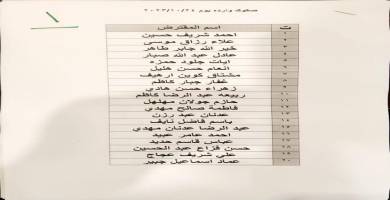 صكوك واردة يوم ٢٠٢٣/١٠/٢٤
ت اسم المقترض
١ احمد شريف حسين
٢ علاء رزاق موسى
٣ خير الله جابر طاهر
٤ عادل عبد الله صبار
٥ ايات جلود حمزه
٦ انعام حسن خليل
٧ مشتاق كوين ارهيف
٨ غفار جبار كاظم
٩ زهراء حسن هادي
١٠ ربيعه عبد الرضا كاظم
١١ حازم جولان مهلهل
١٢ فاطمة صالح مهدي
١٣ عدنان عبد رزن
١٤ باسم فاضل نايف
١٥ عبد الرضا عدنان مهدي
١٦ احمد عامر عبيد
١٧ عباس قاسم حديد
١٨ حسن فزاع عبد الحسين
١٩ علي شريف عجاج
٢٠ عماد اسماعيل جبير